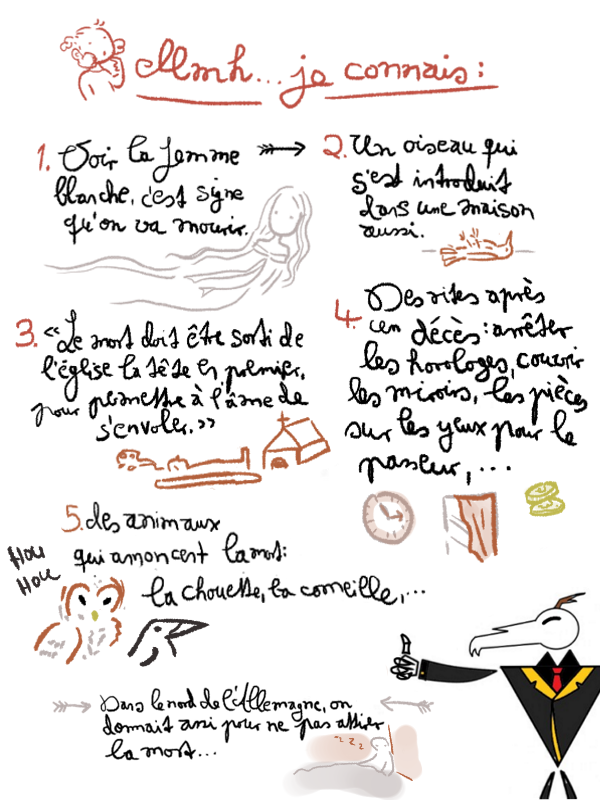 Mmh... je connais:
1. Voir la femme
blanche, c'est signe
qu'on va mourir.
2. Un oiseau qui
s'est introduit
dans une maison
aussi.
3. "Le mort doit être sorti de
l'église la tête en premier,
pour permettre à l'âme de
s'envoler."
4. Des rites après
un décès: arrêter
les horologes, couvrir
les miroirs, les pièces
sur les yeux pour le
passeur,...
5. des animaux
qui annoncent la mort:
la chouette, la corneille,...
Hou
Hou
Dans le nord de l'Allemagne, on
dormait assi pour ne pas attirer
la mort...
zzz